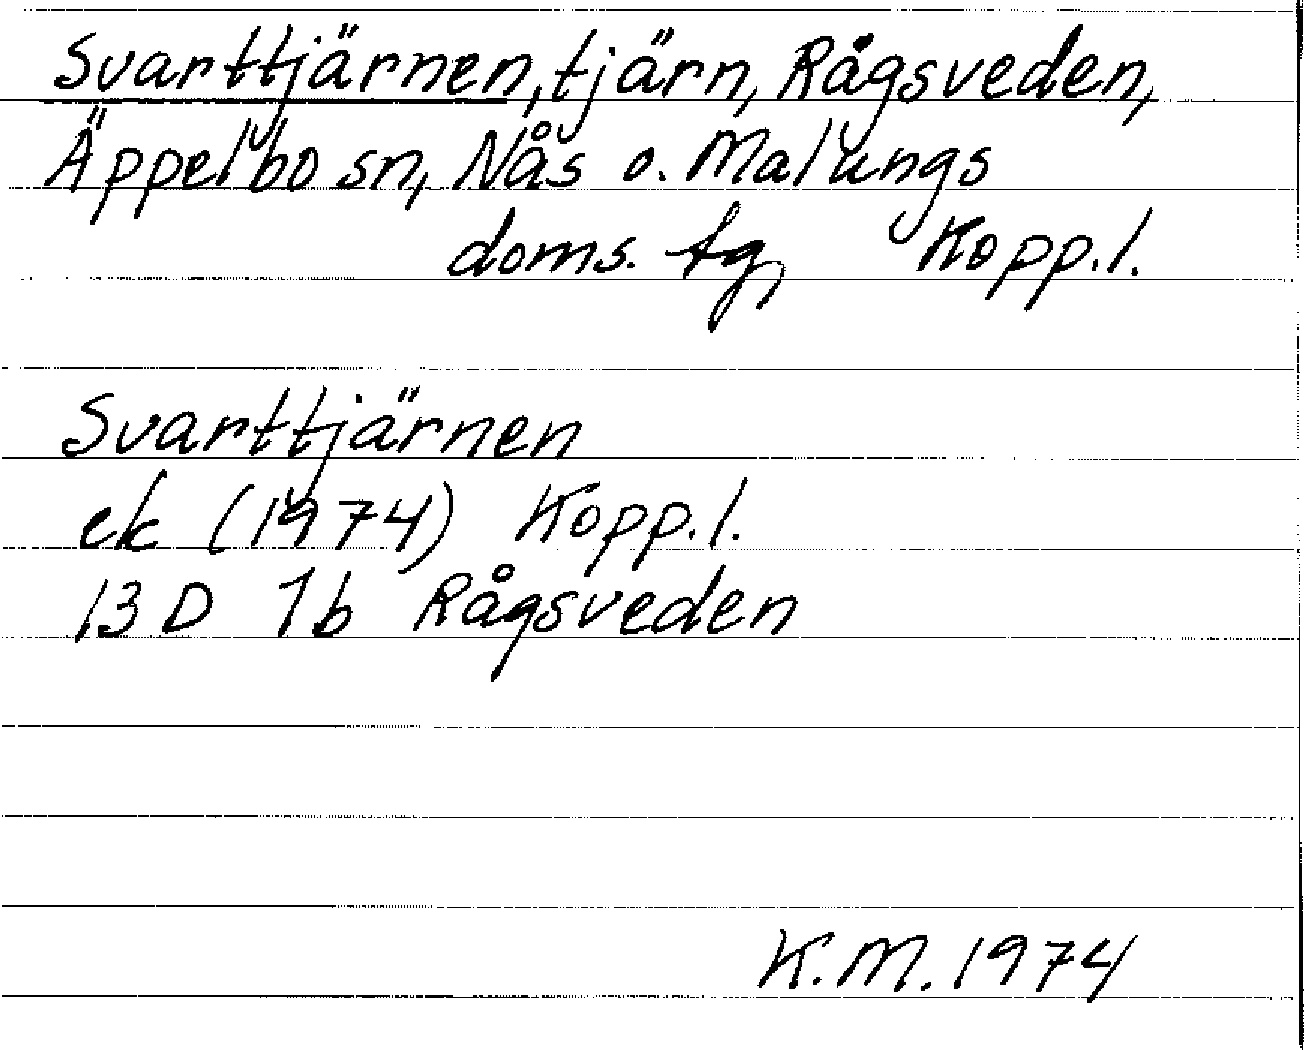 Svarttjärnen, tjärn, Rågsveden,
Äppelbo sn, Nås o. Malungs
doms. tg, Kopp.l.
Svarttjärnen
ek (1974) Kopp.l.
13 D 1b Rågsveden
K.M. 1974